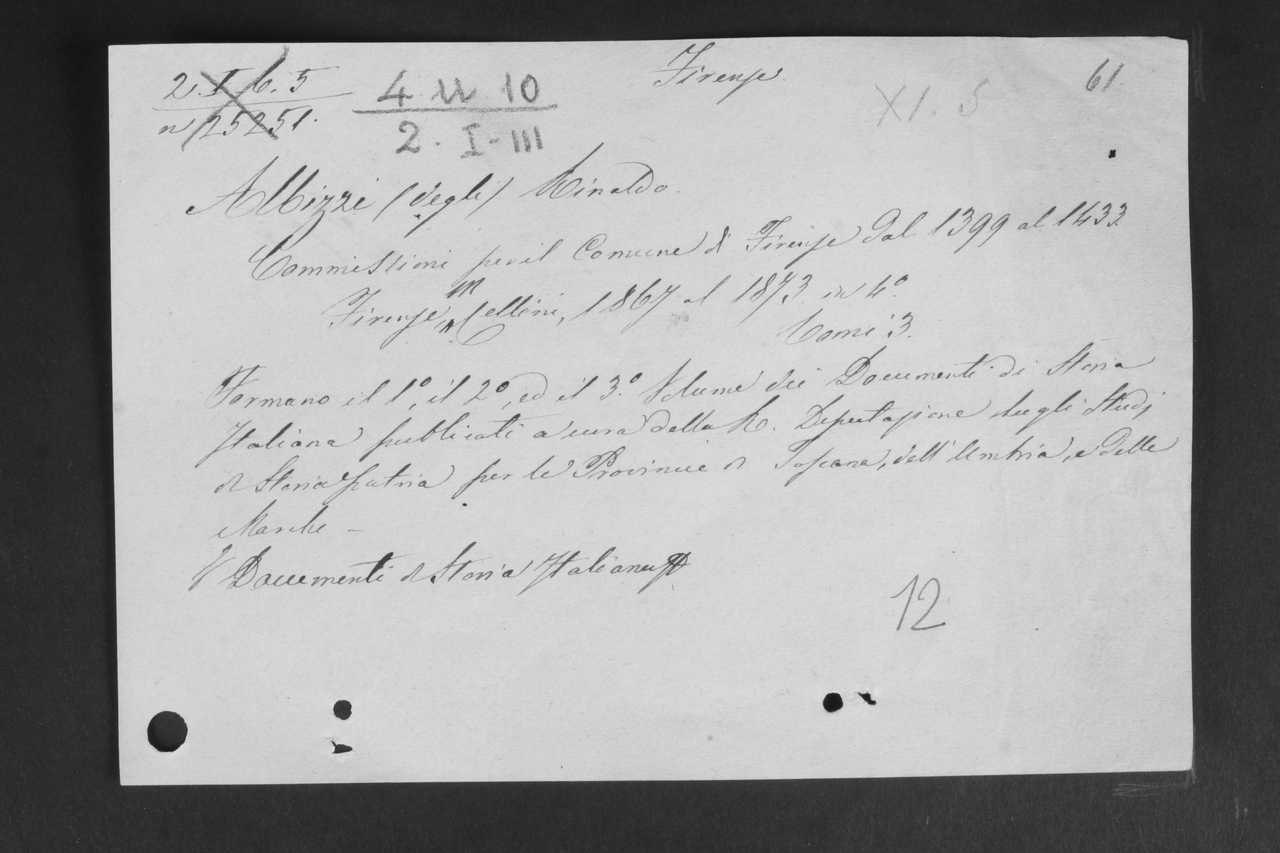 2. I. 6. 5
n 25251.
4 11 10
2. I-III
Firenze.
XI. 5
61.
Albizzi (degli) Rinaldo.
Commissioni per il Comune di Firenze dal 1399 al 1433.
Firenze, Cellini, 1867 al 1873. in 4.º
Tomi 3.
Formano il 1.º, il 2.º, ed il 3.º Volume dei Documenti di Storia
Italiana pubblicati a cura della R. Deputazione degli Studj
di Storia patria per le Provincie di Toscana, dell'Umbria, e delle
Marche –
V Documenti di Storia Italiana
12